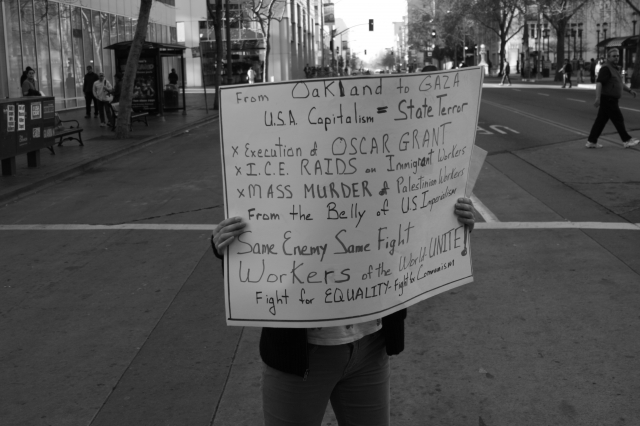 From Oakland to GAZA
U.S.A. Capitalism = State Terror
x Execution of OSCAR GRANT
x I.C.E. RAIDS on Immigrant Workers
x MASS MURDER of Palestinian Workers
From the Belly of US Imperialism
Same Enemy Same Fight
Workers of the World UNITE!
Fight for EQUALITY - Fight for Communism